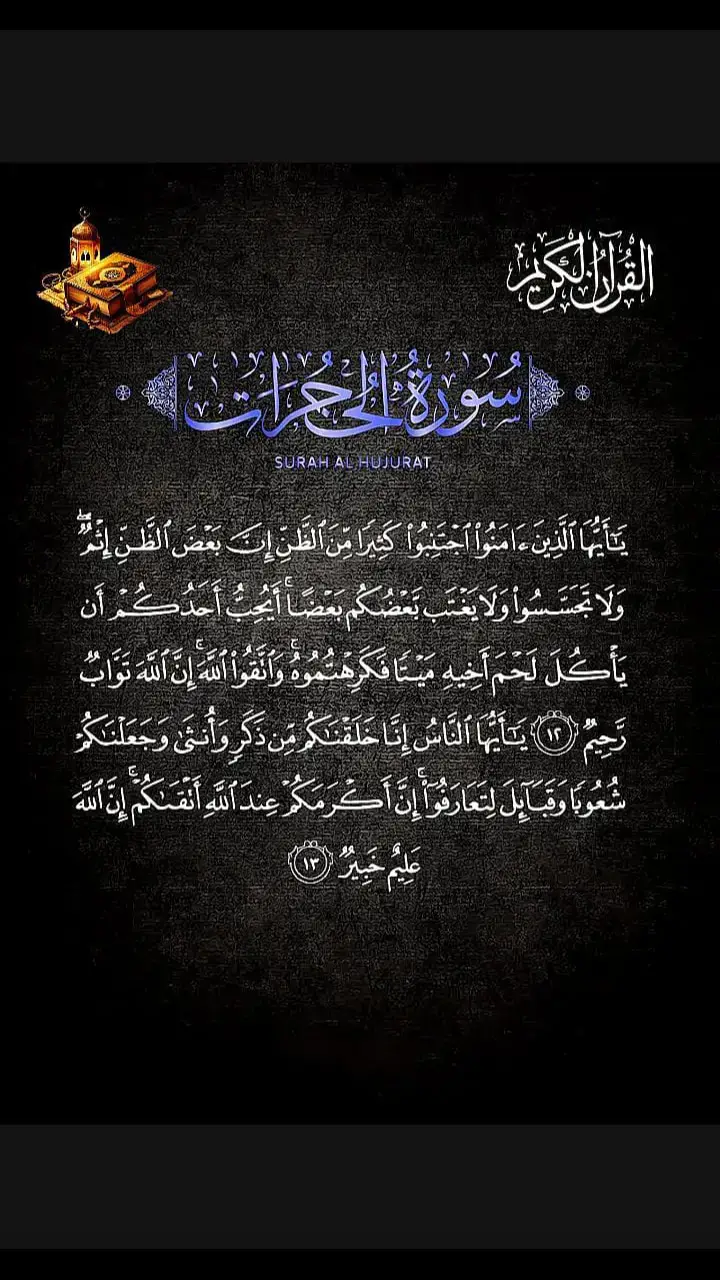 القرآن الكريم
سُورَةُ الحُجُرَات
SURAH AL HUJURAT
يَـٰٓأَيُّهَا ٱلَّذِينَ ءَامَنُوا۟ ٱجْتَنِبُوا۟ كَثِيرًا مِّنَ ٱلظَّنِّ إِنَّ بَعْضَ ٱلظَّنِّ إِثْمٌ ۖ
وَلَا تَجَسَّسُوا۟ وَلَا يَغْتَب بَّعْضُكُم بَعْضًا ۚ أَيُحِبُّ أَحَدُكُمْ أَن
يَأْكُلَ لَحْمَ أَخِيهِ مَيْتًا فَكَرِهْتُمُوهُ ۚ وَٱتَّقُوا۟ ٱللَّهَ ۚ إِنَّ ٱللَّهَ تَوَّابٌ
رَّحِيمٌ ١٢ يَـٰٓأَيُّهَا ٱلنَّاسُ إِنَّا خَلَقْنَـٰكُم مِّن ذَكَرٍ وَأُنثَىٰ وَجَعَلْنَـٰكُمْ
شُعُوبًا وَقَبَآئِلَ لِتَعَارَفُوٓا۟ ۚ إِنَّ أَكْرَمَكُمْ عِندَ ٱللَّهِ أَتْقَىٰكُمْ ۚ إِنَّ ٱللَّهَ
عَلِيمٌ خَبِيرٌ ١٣